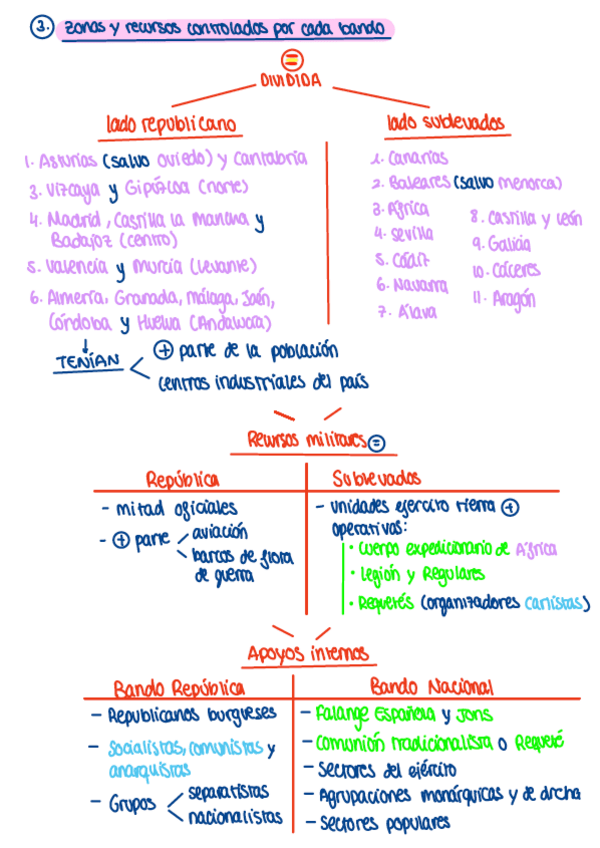 3. Zonas y recursos controlados por cada bando
=
DIVIDIDA
lado republicano
1. Asturias (salvo Oviedo) y Cantabria
3. Vizcaya y Gipúzcoa (norte)
4. Madrid, Castilla la Mancha y
Badajoz (centro)
5. Valencia y Murcia (levante)
6. Almería, Granada, Málaga, Jaén,
Córdoba y Huelva (Andalucía)
TENÍAN
+ parte de la población
centros industriales del país
lado sublevados
1. Canarias
2. Baleares (salvo menorca)
3. África
4. Sevilla
5. Cádiz
6. Navarra
7. Álava
8. Castilla y León
9. Galicia
10. Cáceres
11. Aragón
Recursos militares =
República
- mitad oficiales
- + parte
aviación
barcos de flota
de guerra
Sublevados
- Unidades ejercito tierra +
operativas:
• Cuerpo expedicionario de África
• Legión y Regulares
• Requetés (organizadores Carlistas)
Apoyos internos
Bando República
- Republicanos burgueses
- Socialistas, comunistas y
anarquistas
- Grupos
separatistas
nacionalistas
Bando Nacional
- Falange Española y Jons
- Comunión tradicionalista o Requeté
- Sectores del ejército
- Agrupaciones monárquicas y de drcha
- Sectores populares